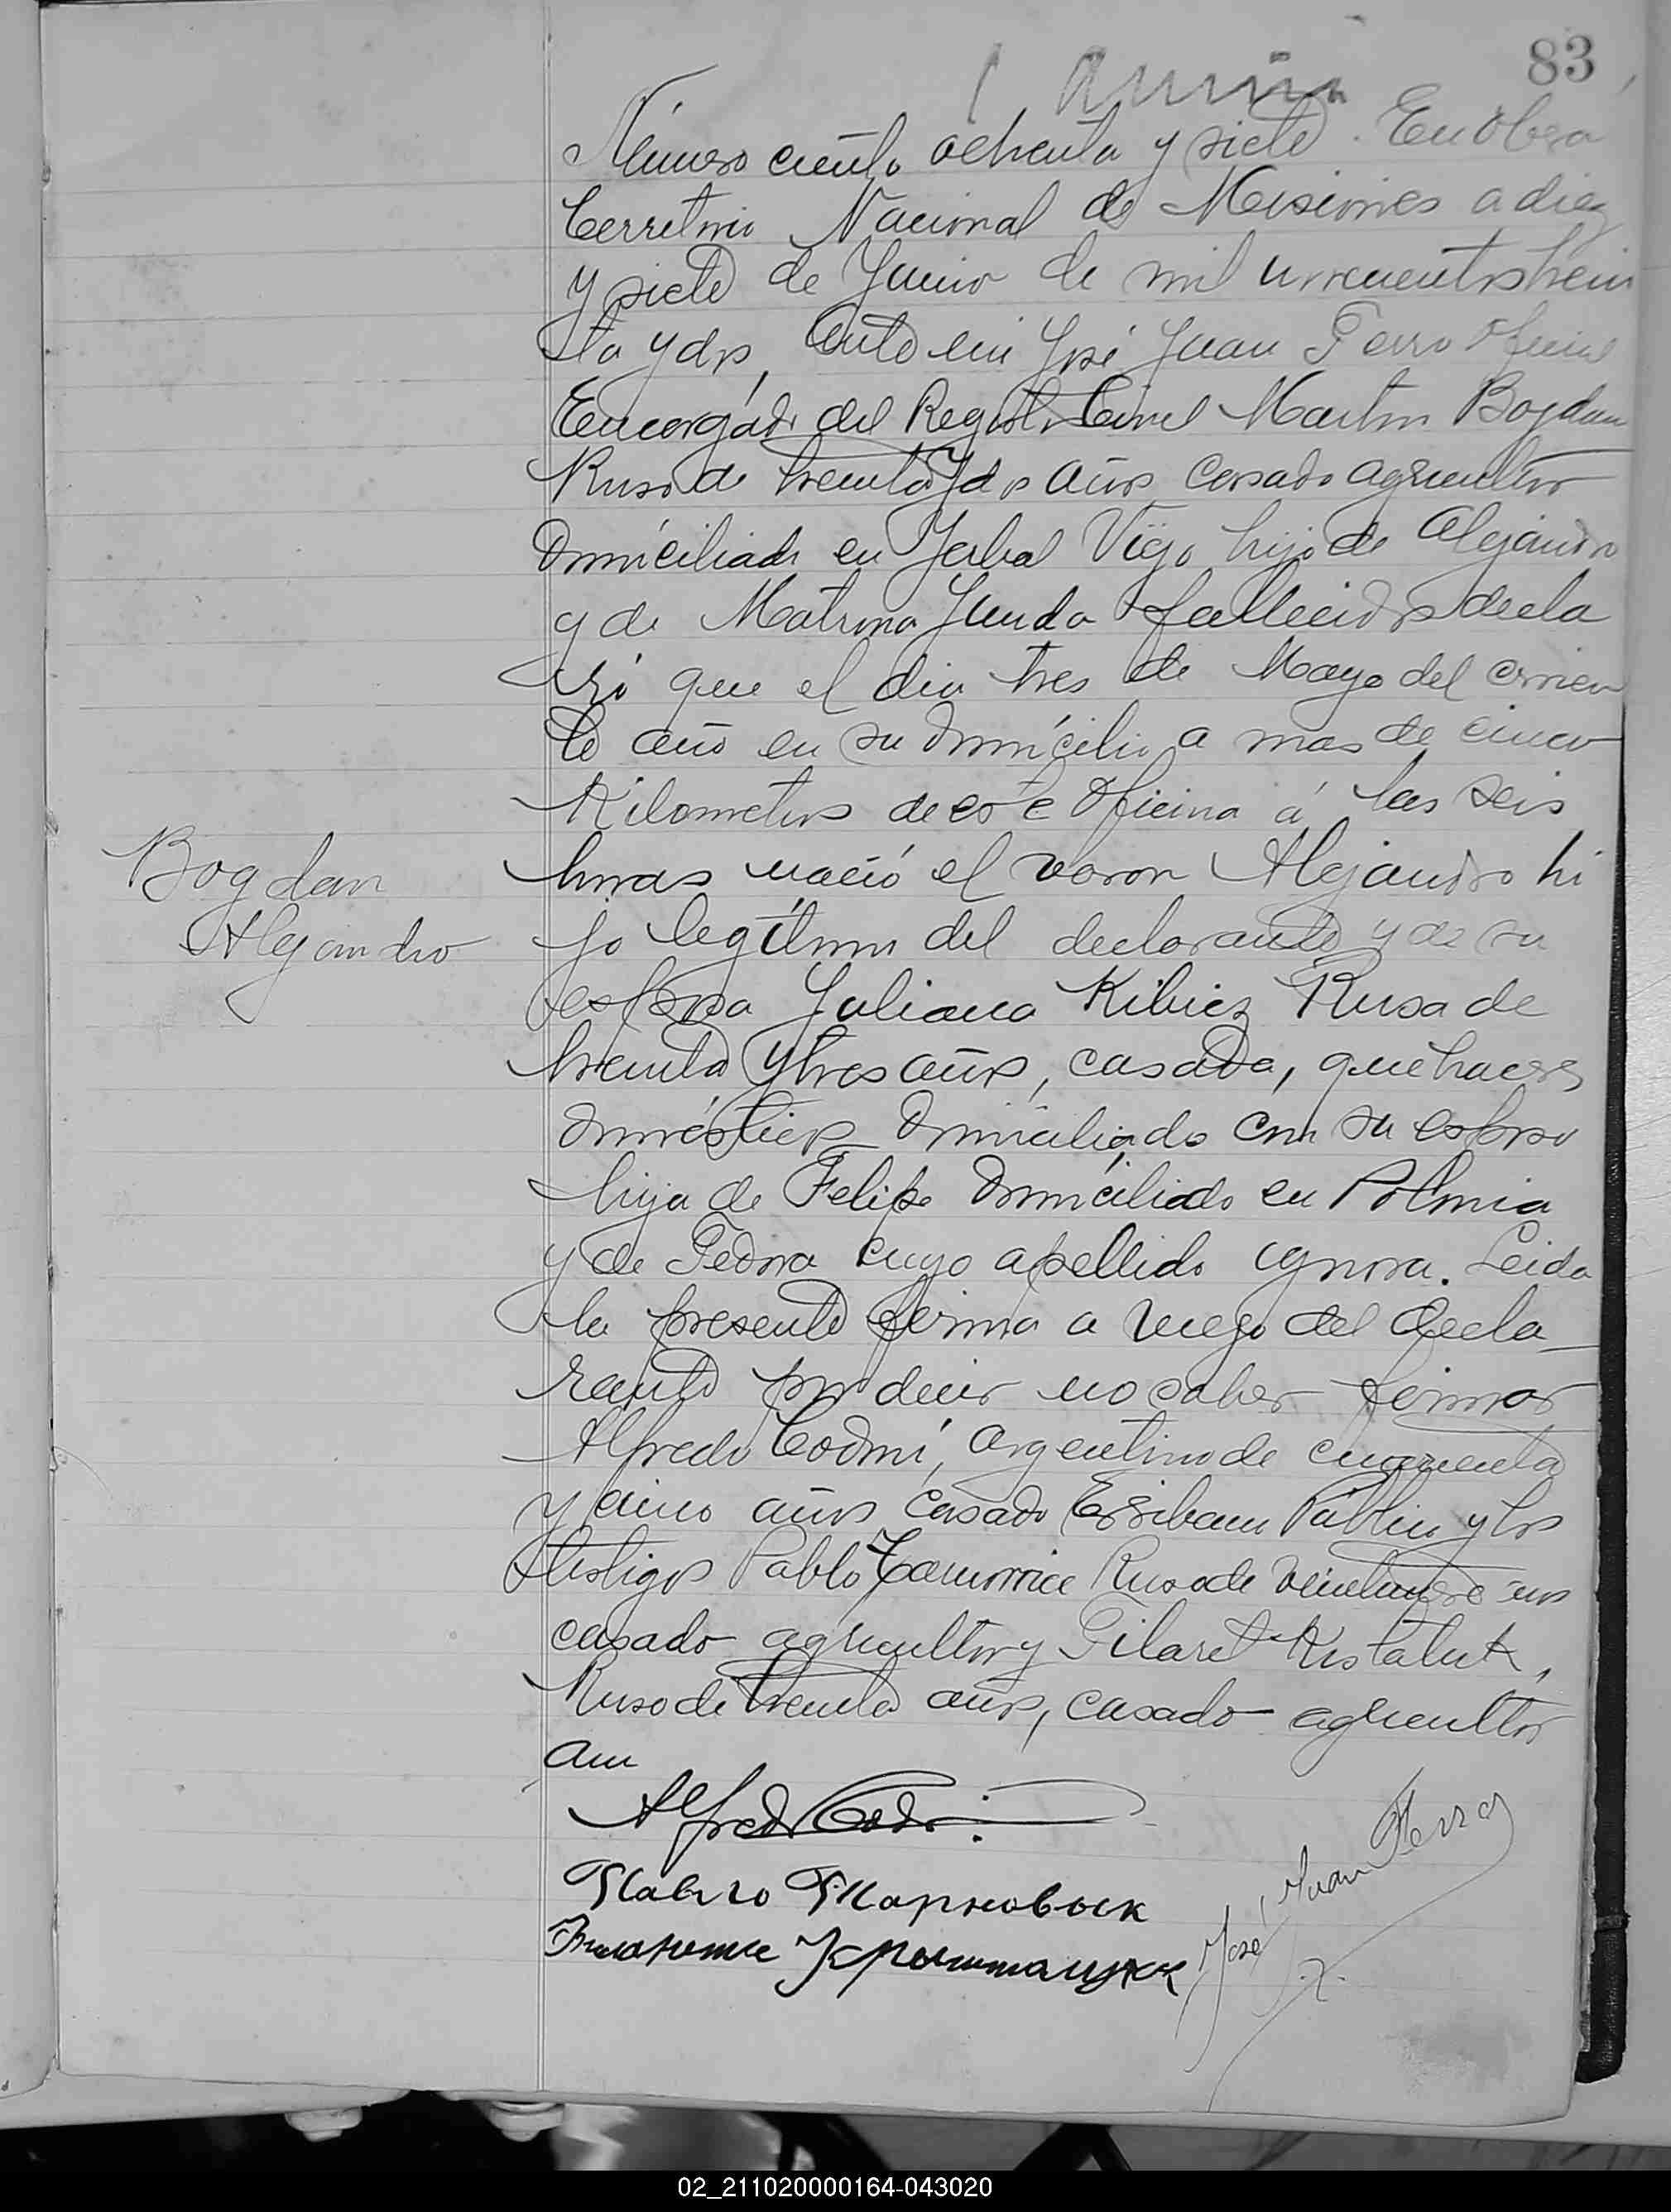 83
Número ciento ochenta y siete. En Obera
Territorio Nacional de Misiones a diez
y siete de Junio de mil novecientos trein
ta y dos, Ante mi José Juan Ferro Oficial
Encargado del Registro Civil Martin Bogdan
Ruso de treinta y dos años casado agricultor
domiciliado en Yerbal Viejo hijo de Alejandro
y de Matrona Junda fallecidos decla
ró que el dia tres de Mayo del corrien
te año en su domicilio a mas de cinco
Kilometros de este Oficina á las seis
horas nació el varon Alejandro hi
Bogdan
Alejandro
jo legítimo del declarante y de su
esposa Juliana Kibiez Rusa de
treinta y tres años, casada, quehaceres
domésticos domiciliada con su esposo
hija de Felipe domiciliado en Polonia
y de Fedora cuyo apellido ignora. Leida
la presente firma a ruego del decla
rante por decir no saber firmar
Alfredo Codmi, argentino de cuarenta
y cinco años casado Escribano Público y los
testigos Pablo Ruso de años
casado agricultor y Filaret Kistatuk,
Ruso de treinta años, casado agricultor
Alfredo
Павло Тарновык
José Juan Ferro